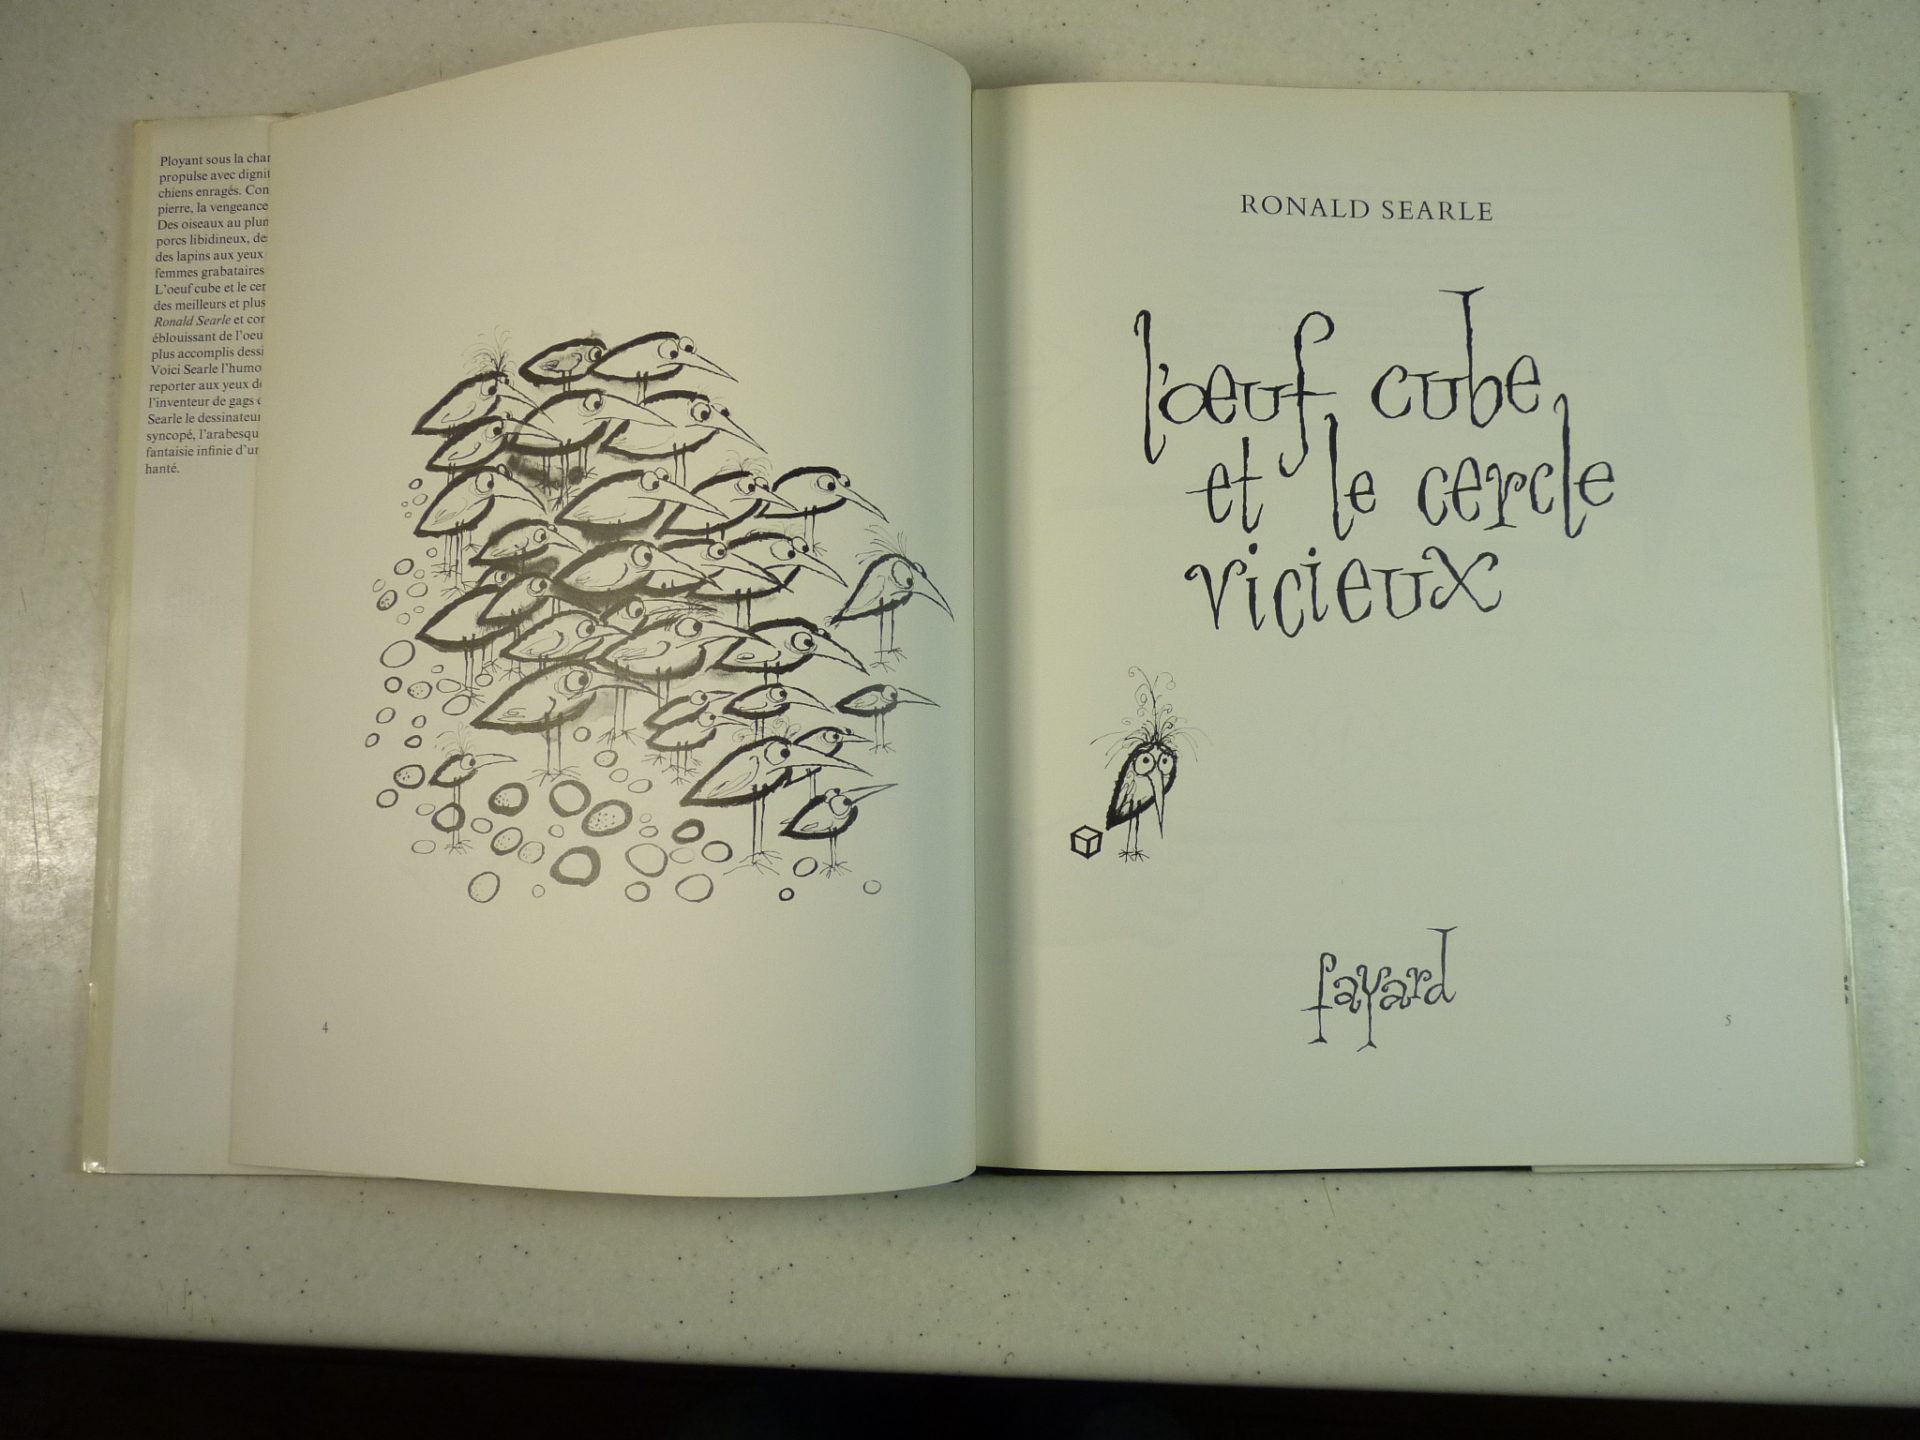 Ployant sous la
propulse avec
chiens enragés.
pierre, la vengeance
Des oiseaux au
porcs libidineux,
des lapins aux yeux
femmes grabataires
L'oeuf cube et le
des meilleurs et plus
Ronald Searle et
éblouissant de
plus accomplis
Voici Searle
reporter aux yeux
l'inventeur de gags
Searle le dessinateur
syncopé,
fantaisie infinie
hanté.
4
RONALD SEARLE
l'œuf cube
et le cercle
vicieux
fayard
5